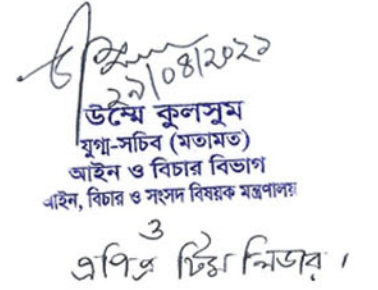 ২৯/০৪/২০২১
উম্মে কুলসুম
যুগ্ম-সচিব (মতামত)
আইন ও বিচার বিভাগ
আইন, বিচার ও সংসদ বিষয়ক মন্ত্রণালয়
ও
এপিএ টিম লিডার।